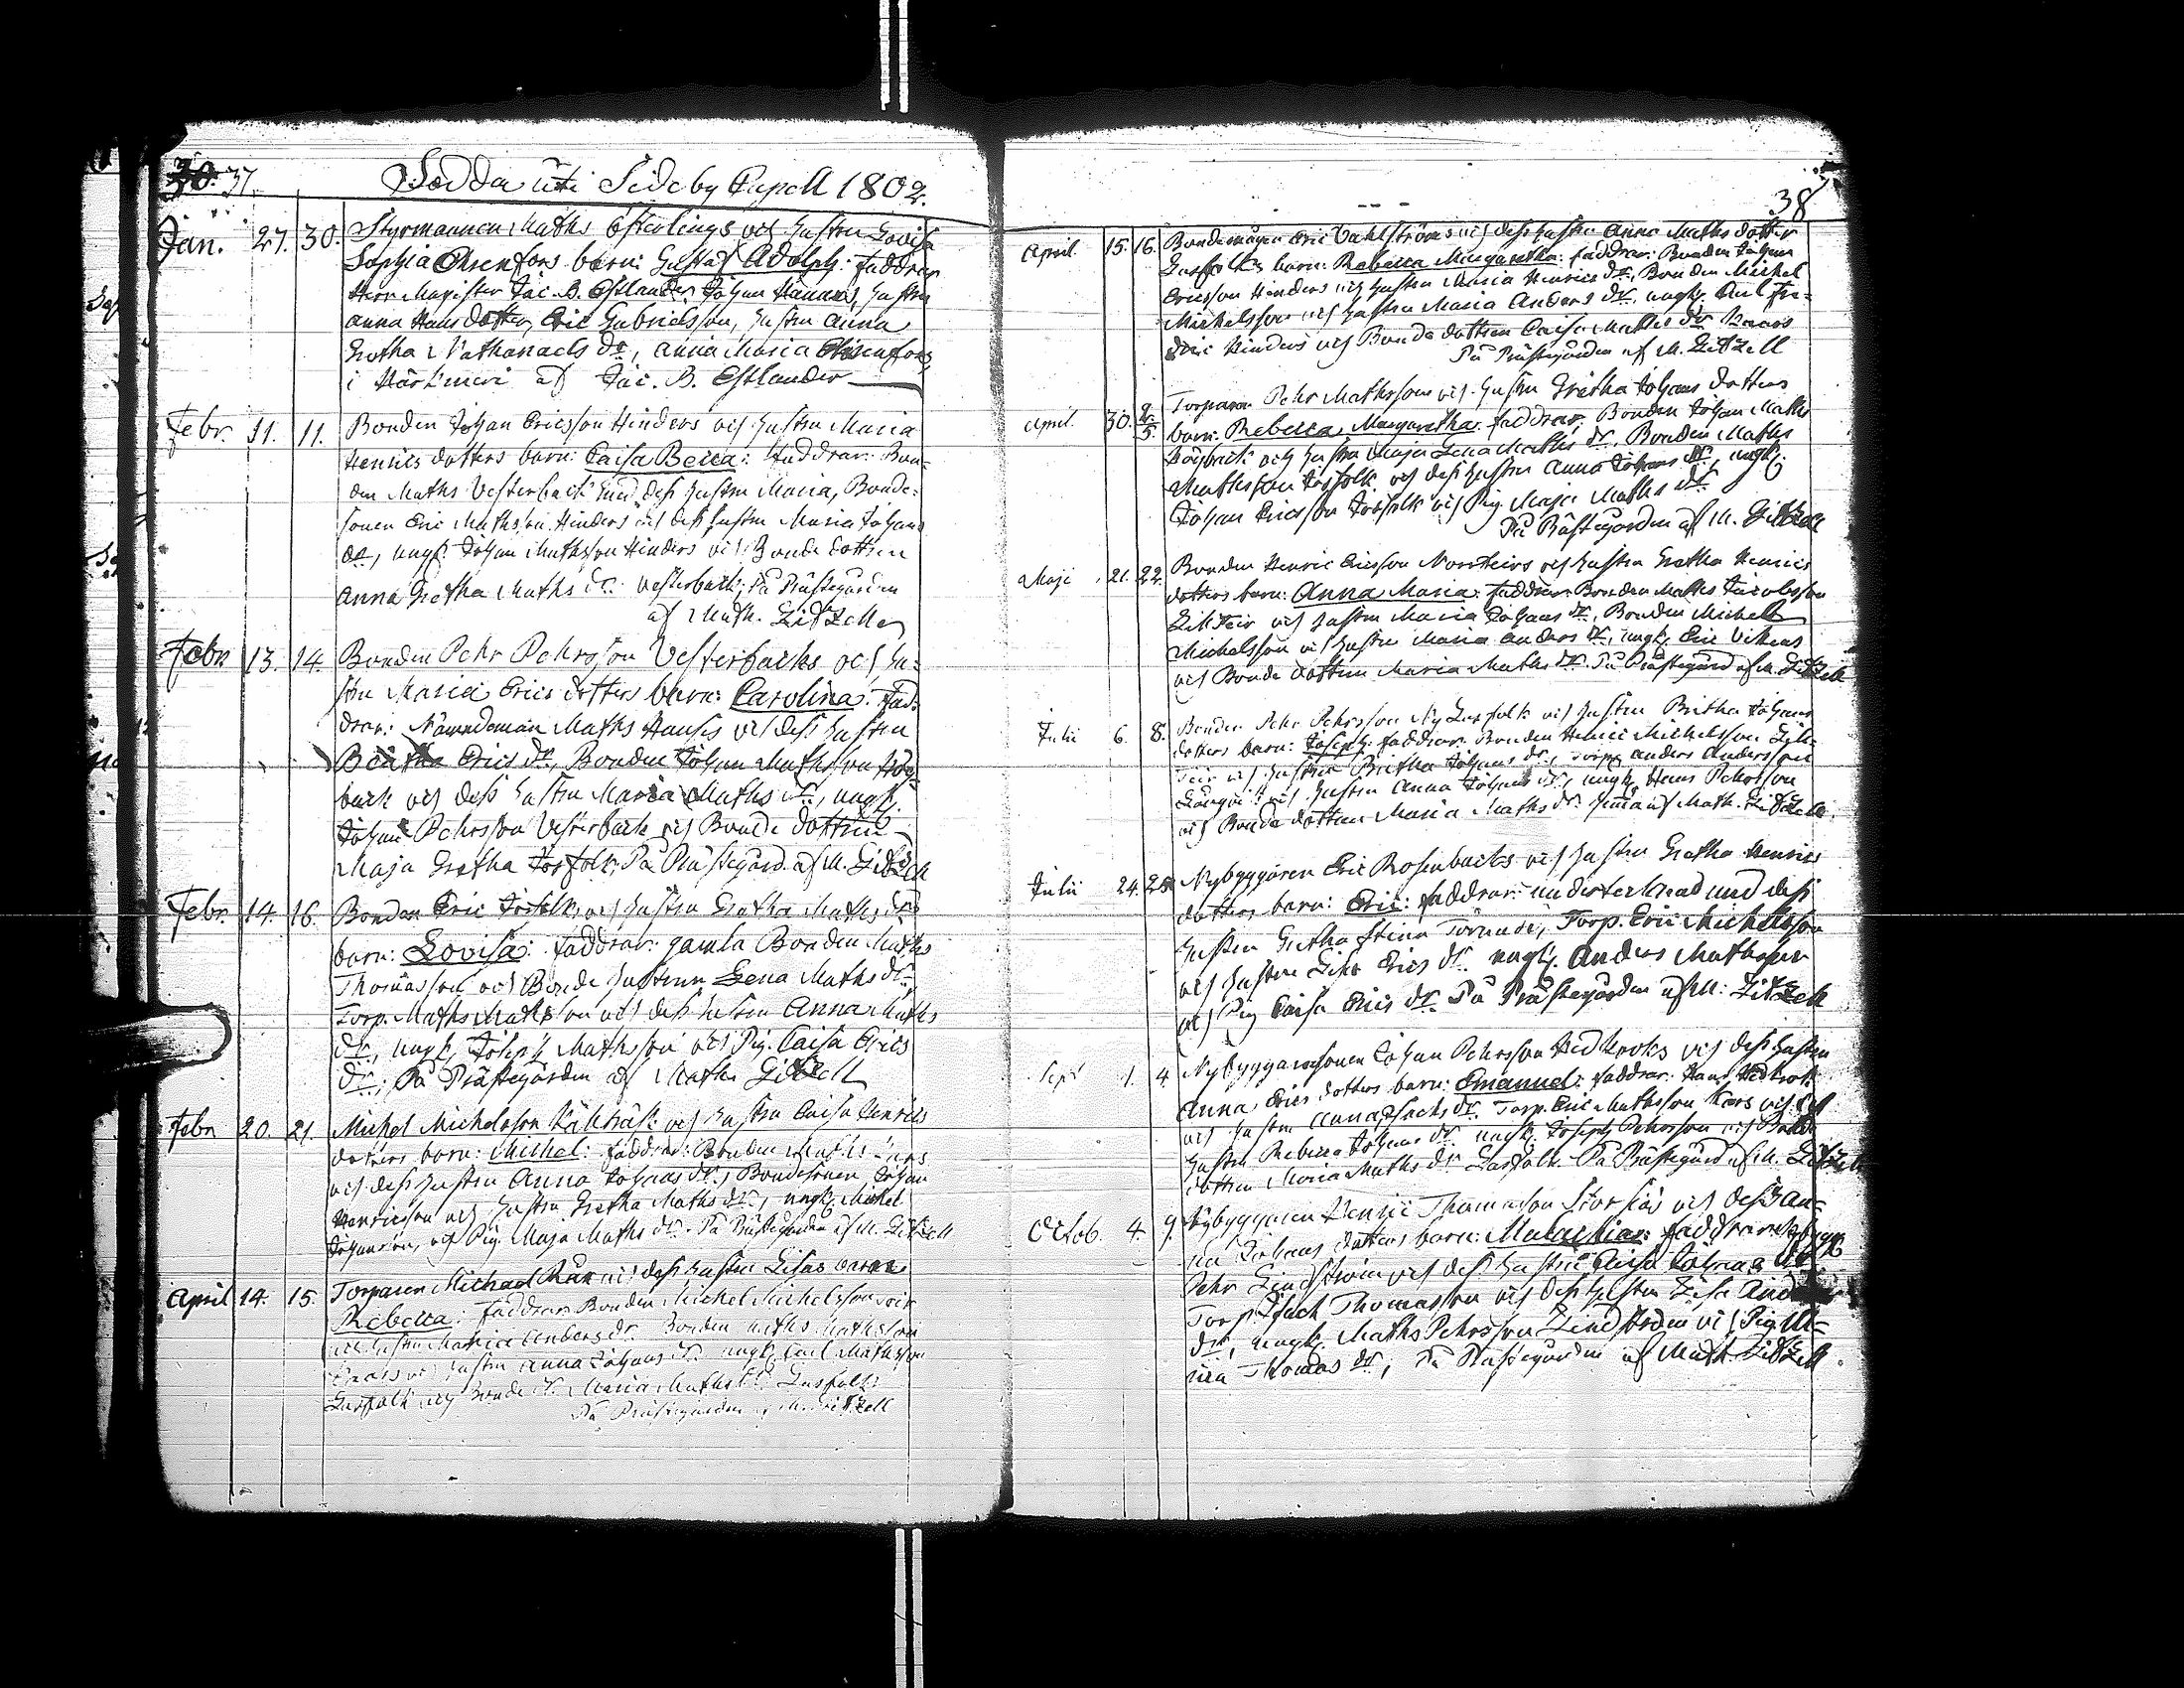 37.
Födda uti Sideby Capell 1802.
Jan. 27. 30. Styrmannen Maths Österlings och hustru Lovisa
Sophia Ohrenfors barn: Gustaf Adolph: faddrar
Herr Magister Jac. B. Estlander, Johan Hannus, hustru
Anna Hans dotter, Eric Gabrielsson, hustru Anna
Gretha Nathanaels dr, Anna Maria
i Härkmeri af Jac. B. Estlander
Febr. 11. 11. Bonden Johan Ericsson Hinders och hustru Maria
Henrics dotters barn: Caisa Becca: faddrar: Bon-
den Maths Vesterback med dess hustru Maria, Bonde-
sonen Eric Mathsson Hinders och dess hustru Maria Johans
dr, ungk. Johan Mathsson Hinders och Bonde dottren
Anna Gretha Maths dr Vesterback; På Prästegården
af Math. Litzell
Febr. 13. 14. Bonden Pehr Pehrsson Vesterbacks och hu-
stru Maria Erics dotters barn: Carolina: fad-
drar: Nämndeman Maths Hanses och dess hustru
Beata Erics dr, Bonden Johan Mathsson Hög-
back och dess hustru Maria Maths dr, ungk.
Johan Pehrsson Vesterback och Bonde dottren
Maja Gretha Josfolk; På Prästegård. af M. Litzell
Febr. 14. 16. Bonden Eric Josfolks och hustru Gretha Maths dr
barn: Lovisa: faddrar: gamla Bonden Maths
Thomasson och Bonde hustrun Lena Maths dr,
Torp. Maths Mathsson och dess hustru Anna Maths
dr, ungk. Joseph Mathsson och Pig. Caisa Erics
dr; På Prästegården af Math. Litzell
Febr. 20. 21. Michel Michelsson och hustru Caisa Henrics
dotters barn: Michel: faddrar: Bonden Maths
och dess hustru Anna Johans dr, Bondesonen Johan
Henricsson och hustru Gretha Maths dr, ungk. Michel
Johansson, och Pig. Maja Maths dr. På Prästegården af M. Litzell
April 14. 15. Torparen Michael och dess hustru Lisas barn
Rebecca: faddrar Bonden Michel Michelsson
och hustru Maria Anders dr. Bonden Maths Mathsson
och hustru Anna Johans dr. ungk. Carl Mathsson
Lasfolk och Bonde dr. Maria Maths dr Lasfolk
På Prästegården af M. Litzell
38
April. 15. 16. Bondemågen Eric Dahlströms och dess hustru Anna Maths dotter
Lasfolks barn: Rebecca Margaretha: faddrar: Bonden Johan
Ericsson Hinders och hustru Maria Henrics dr, Bonden Michel
Michelsson och hustru Maria Anders dr, ungk. Carl Fre-
dric Hinders och Bonde dottren Caisa Maths dr
På Prästegården af M. Litzell
April. 30. 2/5. Torparen Pehr Mathssons och hustru Gretha Johans dotters
barn: Rebecca Margaretha: faddrar, Bonden Johan Maths
Högback och hustru Maja Lena Maths dr, Bonden Maths
Mathsson Josfolk och dess hustru Anna Johans dr, ungk.
Johan Ericsson Josfolk och Pig. Maja Maths dr
På Prästegården af M. Litzell
Maji 21. 22. Bonden Henric Ericsson och hustru Gretha Henrics
dotters barn: Anna Maria: faddrar: Bonden Maths Jacobsson
och hustru Maria Johans dr, Bonden Michel
Michelsson och hustru Maria Anders dr, ungk. Eric
och Bonde dottren Maria Maths dr. På Prästegård af M. Litzell
Julii 6. 8. Bonden Pehr Pehrsson Ny Lasfolk och hustru Britha Johans
dotters barn: Joseph: faddrar: Bonden Henric Michelsson
och hustru Britha Johans dr, Torp. Anders Andersson
och hustru Anna Johans dr, ungk. Hans Pehrsson
och Bonde dottren Maria Maths dr. hemma af Math. Litzell.
Julii 24. 25. Nybyggaren Eric Rosenbacks och hustru Gretha Henrics
dotters barn: Eric: faddrar: undertecknad med dess
hustru Gretha Stina Törnudd, Torp. Eric Michelsson
och hustru Lisa Erics dr. ungk. Anders Mathsson
och Pig Caisa Erics dr. På Prästegården af M: Litzell
Sept. 1. 4. Nybyggaresonen Johan Pehrsson Hedkroks och dess hustru
Anna Erics dotters barn: Emanuel: faddrar: Hans Hedkrok
och hustru Anna Isacs dr Torp. Eric Mathsson och
hustru Rebecca Johans dr. ungk. Joseph Pehrsson och Bonde
dottren Maria Maths dr Lasfolk. På Prästegård af M. Litzell
Octob. 4. 9. Nybyggaren Henric Thomasson Storsjös och dess An-
na Johans dotters barn: Malachias: faddrar nybygg.
Pehr Lindström och dess hustru Caisa Johans dr
Torp. Isach Thomasson och dess hustru Lisa
dr, ungk. Maths Pehrsson Lindström och Pig. M-
ria Thomas dr, På Prästegården af Math. Litzell.